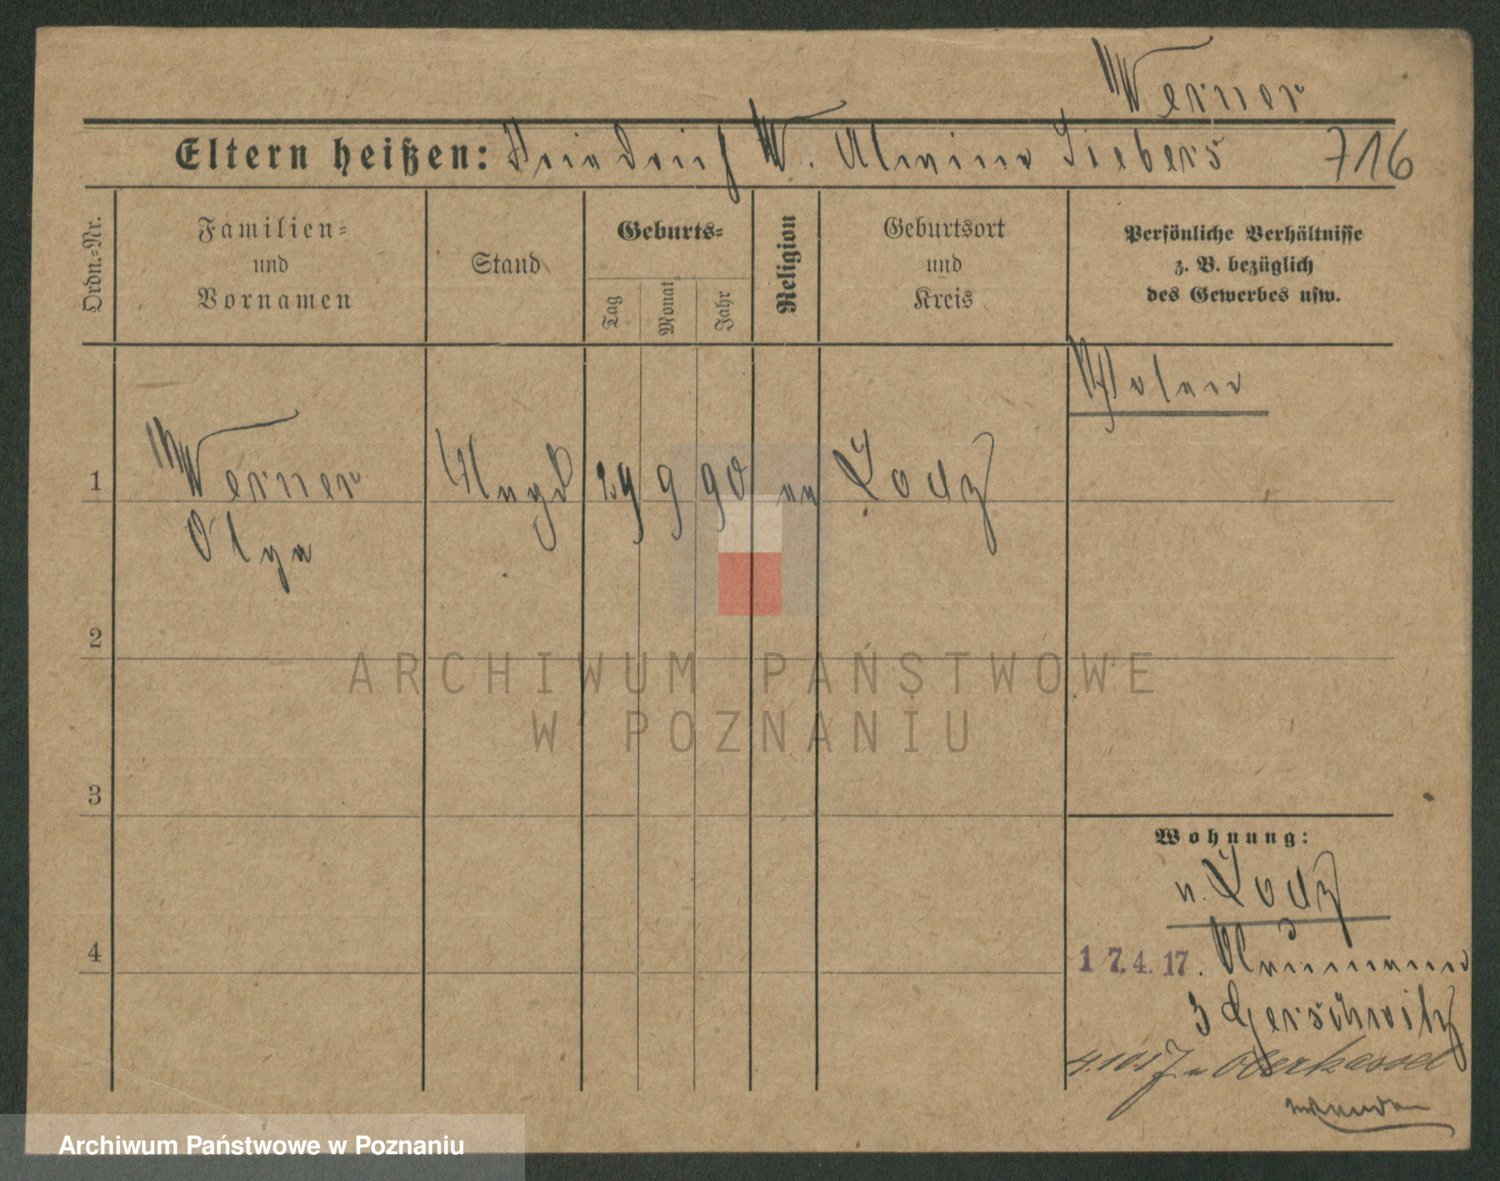 Werner
Eltern heißen: Friedrich W. Alwine Siebers 716
Ordn.-Nr.
Familien- und Vornamen
Stand
Geburts-
Tag
Monat
Jahr
Religion
Geburtsort und Kreis
Persönliche Verhältnisse
z. B. bezüglich
des Gewerbes usw.
Polen
1 Werner Magd 29 9 90 ev Lodz
Olga
2
3
4
Wohnung:
n. Lodz
17.4.17. Naumann
3 Gerschwitz
n Oberkassel
ARCHIWUM PAŃSTWOWE
W POZNANIU
Archiwum Państwowe w Poznaniu